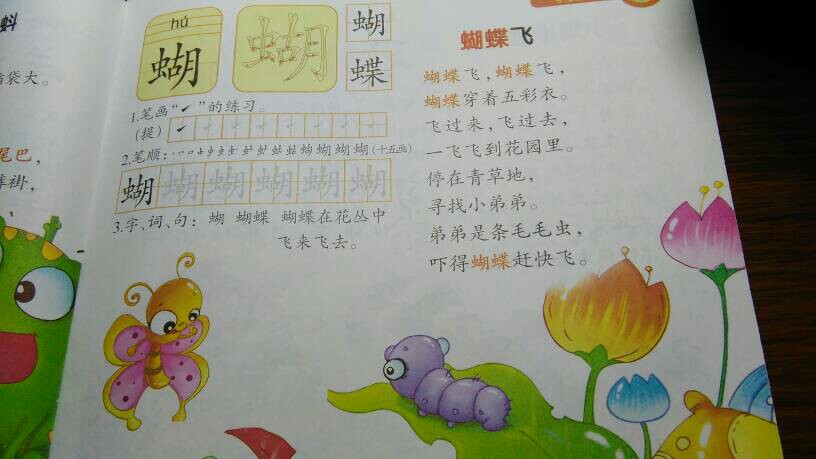 蚪
袋大。
尾巴，
hú
蝴
蝴
蝴
蝶
1.笔画“㇀”的练习。
(提)
2.笔顺：
蝴蝴蝴(十五画)
蝴蝴蝴蝴蝴蝴
3.字、词、句： 蝴 蝴蝶 蝴蝶在花丛中
飞来飞去。
蝴蝶飞
蝴蝶飞，蝴蝶飞，
蝴蝶穿着五彩衣。
飞过来，飞过去，
一飞飞到花园里。
停在青草地，
寻找小弟弟。
弟弟是条毛毛虫，
吓得蝴蝶赶快飞。